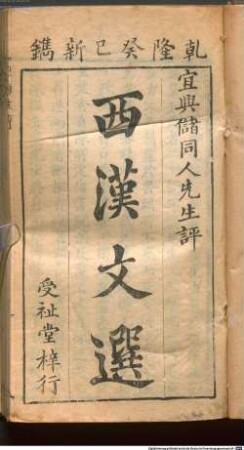 乹隆癸巳新鐫
宜興儲同人先生評
西漢文選
受祉堂梓行